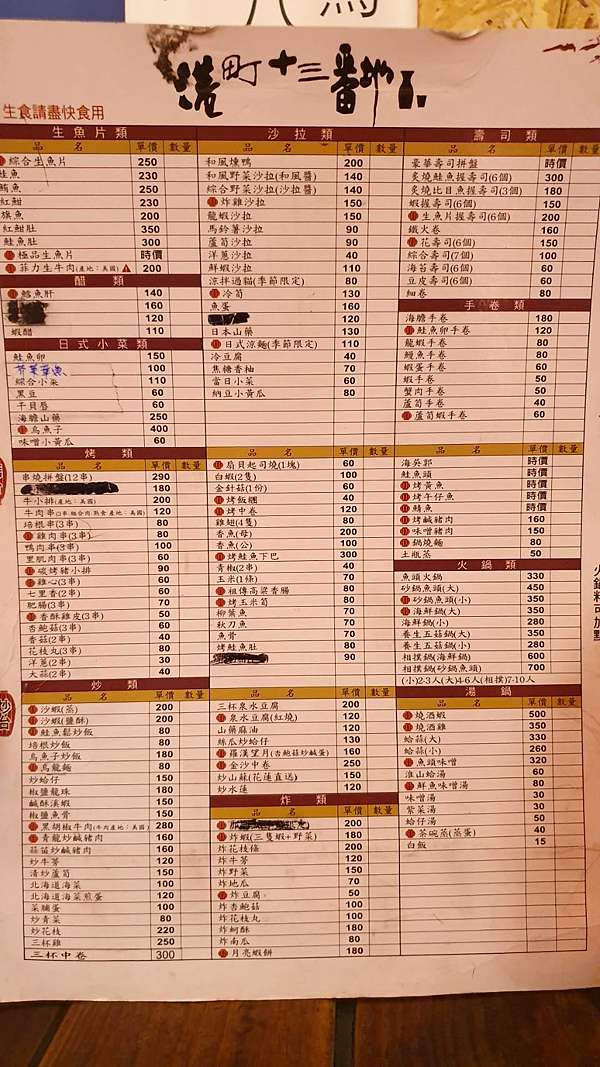 港町十三番地
生食請盡快食用
生魚片類
品名 單價 數量
綜合生魚片 250
鮭魚 230
鮪魚 250
紅魽 230
旗魚 200
紅魽肚 350
鮭魚肚 300
極品生魚片 時價
菲力生牛肉(產地:美國) 200
醋類
鱈魚肝 140
160
120
蝦醋 110
日式小菜類
鮭魚卵 150
芥茉章魚 100
綜合小菜 110
黑豆 60
干貝唇 60
海膽山藥 250
烏魚子 400
味噌小黃瓜 60
沙拉類
品名 單價 數量
和風燻鴨 200
和風野菜沙拉(和風醬) 140
綜合野菜沙拉(沙拉醬) 140
炸雞沙拉 150
龍蝦沙拉 150
馬鈴薯沙拉 90
蘆筍沙拉 90
洋蔥沙拉 40
鮮蝦沙拉 110
涼拌過貓(季節限定) 80
冷筍 130
魚蛋 160
120
日本山藥 130
日式涼麵(季節限定) 110
冷豆腐 40
焦糖香柚 70
當日小菜 60
納豆小黃瓜 80
壽司類
品名 單價 數量
豪華壽司拼盤 時價
炙燒鮭魚握壽司(6個) 300
炙燒比目魚握壽司(3個) 180
蝦握壽司(6個) 150
生魚片握壽司(6個) 200
鐵火卷 160
花壽司(6個) 150
綜合壽司(7個) 100
海苔壽司(6個) 60
豆皮壽司(6個) 60
細卷 80
手卷類
海膽手卷 180
鮭魚卵手卷 120
龍蝦手卷 80
鰻魚手卷 80
蝦蛋手卷 60
蝦手卷 50
蟹肉手卷 50
蘆筍手卷 40
蘆筍蝦手卷 60
烤類
品名 單價 數量
串燒拼盤(12串) 290
180
牛小排(產地:美國) 200
牛肉串 120
培根串(3串) 80
雞肉串(3串) 80
鴨肉串(3串) 100
里肌肉串(3串) 60
碳烤豬小排 90
雞心(3串) 60
七里香(2串) 60
肥腸(3串) 70
香酥雞皮(3串) 50
杏鮑菇(3串) 60
香菇(2串) 40
花枝丸(3串) 50
洋蔥(2串) 30
大蒜(2串) 40
品名 單價 數量
扇貝起司燒(1塊) 60
白蝦(2隻) 100
金針菇(1份) 60
烤飯糰 40
烤中卷 120
雞翅(1隻) 80
香魚(母) 200
香魚(公) 100
烤鮭魚下巴 300
青椒(2串) 40
玉米(1條) 70
祖傳高粱香腸 80
烤玉米筍 80
柳葉魚 70
秋刀魚 70
魚骨 70
烤鮭魚肚 80
90
品名 單價 數量
海吳郭 時價
鮭魚頭 時價
烤黃魚 時價
烤午仔魚 時價
鯖魚 時價
烤鹹豬肉 160
味噌豬肉 150
鍋燒麵 80
土瓶蒸 50
火鍋類
魚頭火鍋 330
砂鍋魚頭(大) 450
砂鍋魚頭(小) 350
海鮮鍋(大) 350
海鮮鍋(小) 280
養生五菇鍋(大) 350
養生五菇鍋(小) 280
相撲鍋(海鮮鍋) 600
相撲鍋(砂鍋魚頭) 700
(小)2-3人(大)4-6人(相撲)7-10人
火鍋料可加點
炒類
品名 單價 數量
沙蝦(蒸) 200
沙蝦(鹽酥) 200
鮭魚鬆炒飯 80
培根炒飯 80
烏魚子炒飯 80
烏龍麵 80
炒蛤仔 150
椒鹽龍珠 180
鹹酥溪蝦 150
椒鹽魚骨 150
黑胡椒牛肉(牛肉產地:美國) 280
青龍炒鹹豬肉 160
蒜苗炒鹹豬肉 160
炒牛蒡 120
清炒蘆筍 150
北海道海菜 100
北海道海菜煎蛋 120
菜脯蛋 100
炒青菜 80
炒花枝 220
三杯雞 250
三杯中卷 300
品名 單價 數量
三杯泉水豆腐 200
泉水豆腐(紅燒) 120
山藥麻油 120
絲瓜炒蛤仔 130
羅漢望月(杏鮑菇炒鹹蛋) 160
金沙中卷 250
炒山蘇(花蓮直送) 150
炒水蓮 120
炸類
品名 單價 數量
200
炸蝦(三隻蝦+野菜) 180
炸花枝條 200
炸牛蒡 120
炸野菜 150
炸地瓜 70
炸豆腐 50
炸杏鮑菇 100
炸花枝丸 100
炸蚵酥 180
炸南瓜 80
月亮蝦餅 180
湯鍋
品名 單價 數量
燒酒蝦 500
燒酒雞 350
蛤蒜(大) 330
蛤蒜(小) 260
魚頭味噌 320
淮山蛤湯 60
鮮魚味噌湯 80
味噌湯 30
紫菜湯 30
蛤仔湯 50
茶碗蒸(蒸蛋) 40
白飯 15